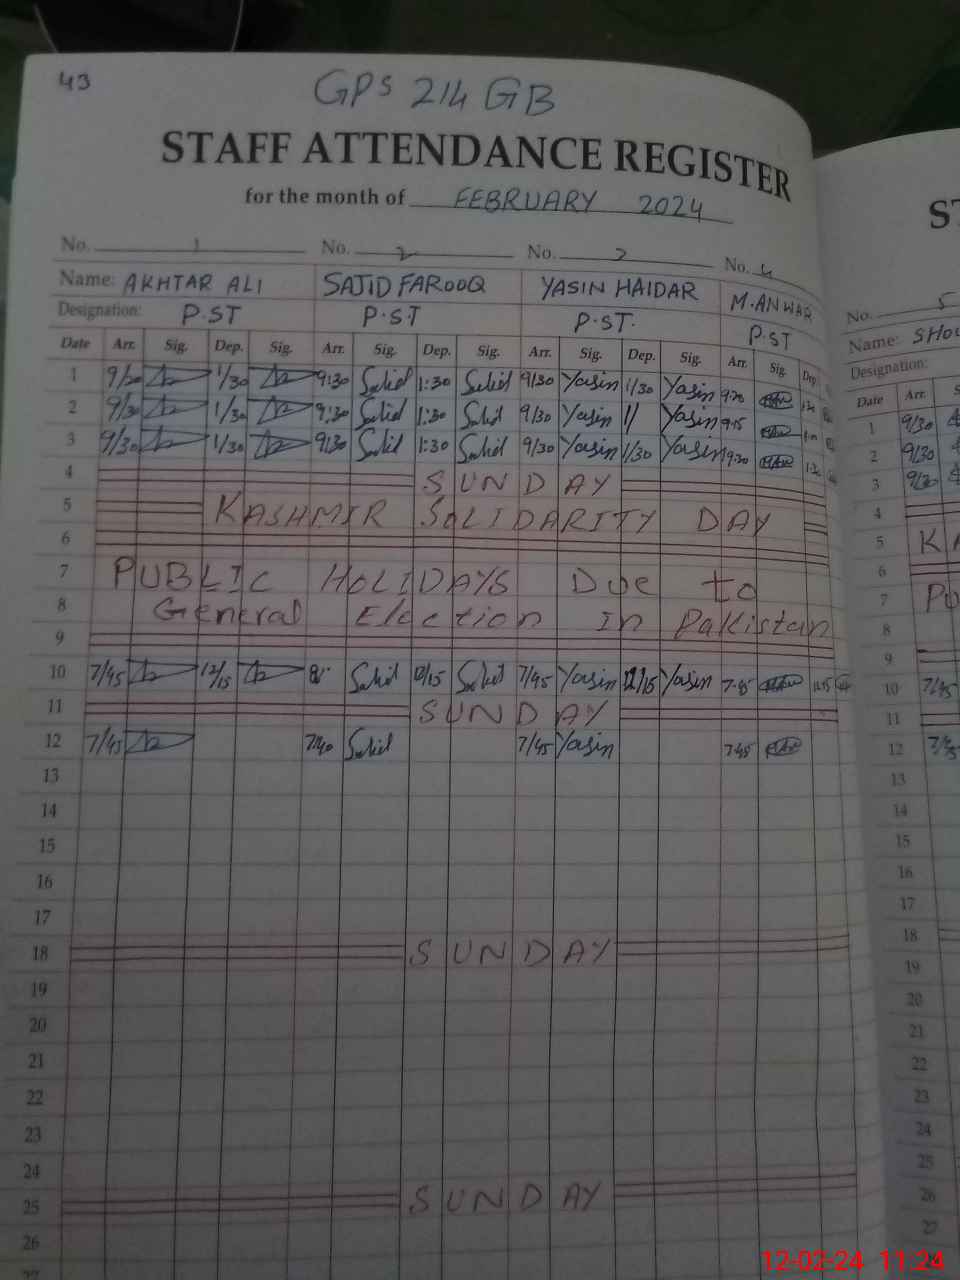 43
GPS 214 GB
STAFF ATTENDANCE REGISTER
for the month of FEBRUARY 2024
No. 1 No. 2 No. 3 No. 4
Name: AKHTAR ALI SAJID FAROOQ YASIN HAIDAR M.ANWAR
Designation: P.ST P.S.T P.S.T. P.ST
Date Arr. Sig. Dep. Sig. Arr. Sig. Dep. Sig. Arr. Sig. Dep. Sig. Arr. Sig. Dep.
1 9/30 1/30 9:30 Sajid 1:30 Sajid 9/30 Yasin 1/30 Yasin 9.20
2 9/30 1/30 9:30 Sajid 1:30 Sajid 9/30 Yasin 11 Yasin 9.15
3 9/30 1/30 9:30 Sajid 1:30 Sajid 9/30 Yasin 1/30 Yasin 9.20
4 SUNDAY
5 KASHMIR SOLIDARITY DAY
6
7 PUBLIC HOLIDAYS Due to
8 General Election In Pakistan
9
10 7/45 12/15 Sajid 12/15 Sajid 7/45 Yasin 12/15 Yasin 7.45
11 SUNDAY
12 7/45 7/40 Sajid 7/45 Yasin 7.45
13
14
15
16
17
18 SUNDAY
19
20
21
22
23
24
25 SUNDAY
26
27
ST
No. 5
Name: SHO
Designation:
Date Arr. S
1 9/30
2 9/30
3 9/30
4
5 K
6
7 PU
8
9
10 7/45
11
12 7/45
13
14
15
16
17
18
19
20
21
22
23
24
25
26
27
28
12-02-24 11:24